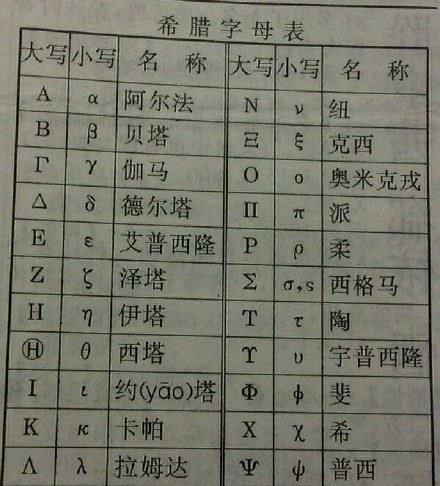 希腊字母表
大写 小写 名称 大写 小写 名称
Α α 阿尔法 Ν ν 纽
Β β 贝塔 Ξ ξ 克西
Γ γ 伽马 Ο ο 奥米克戎
Δ δ 德尔塔 Π π 派
Ε ε 艾普西隆 Ρ ρ 柔
Ζ ζ 泽塔 Σ σ,s 西格马
Η η 伊塔 Τ τ 陶
Θ θ 西塔 ϒ υ 宇普西隆
Ι ι 约(yāo)塔 Φ ϕ 斐
Κ κ 卡帕 Χ χ 希
Λ λ 拉姆达 Ψ ψ 普西